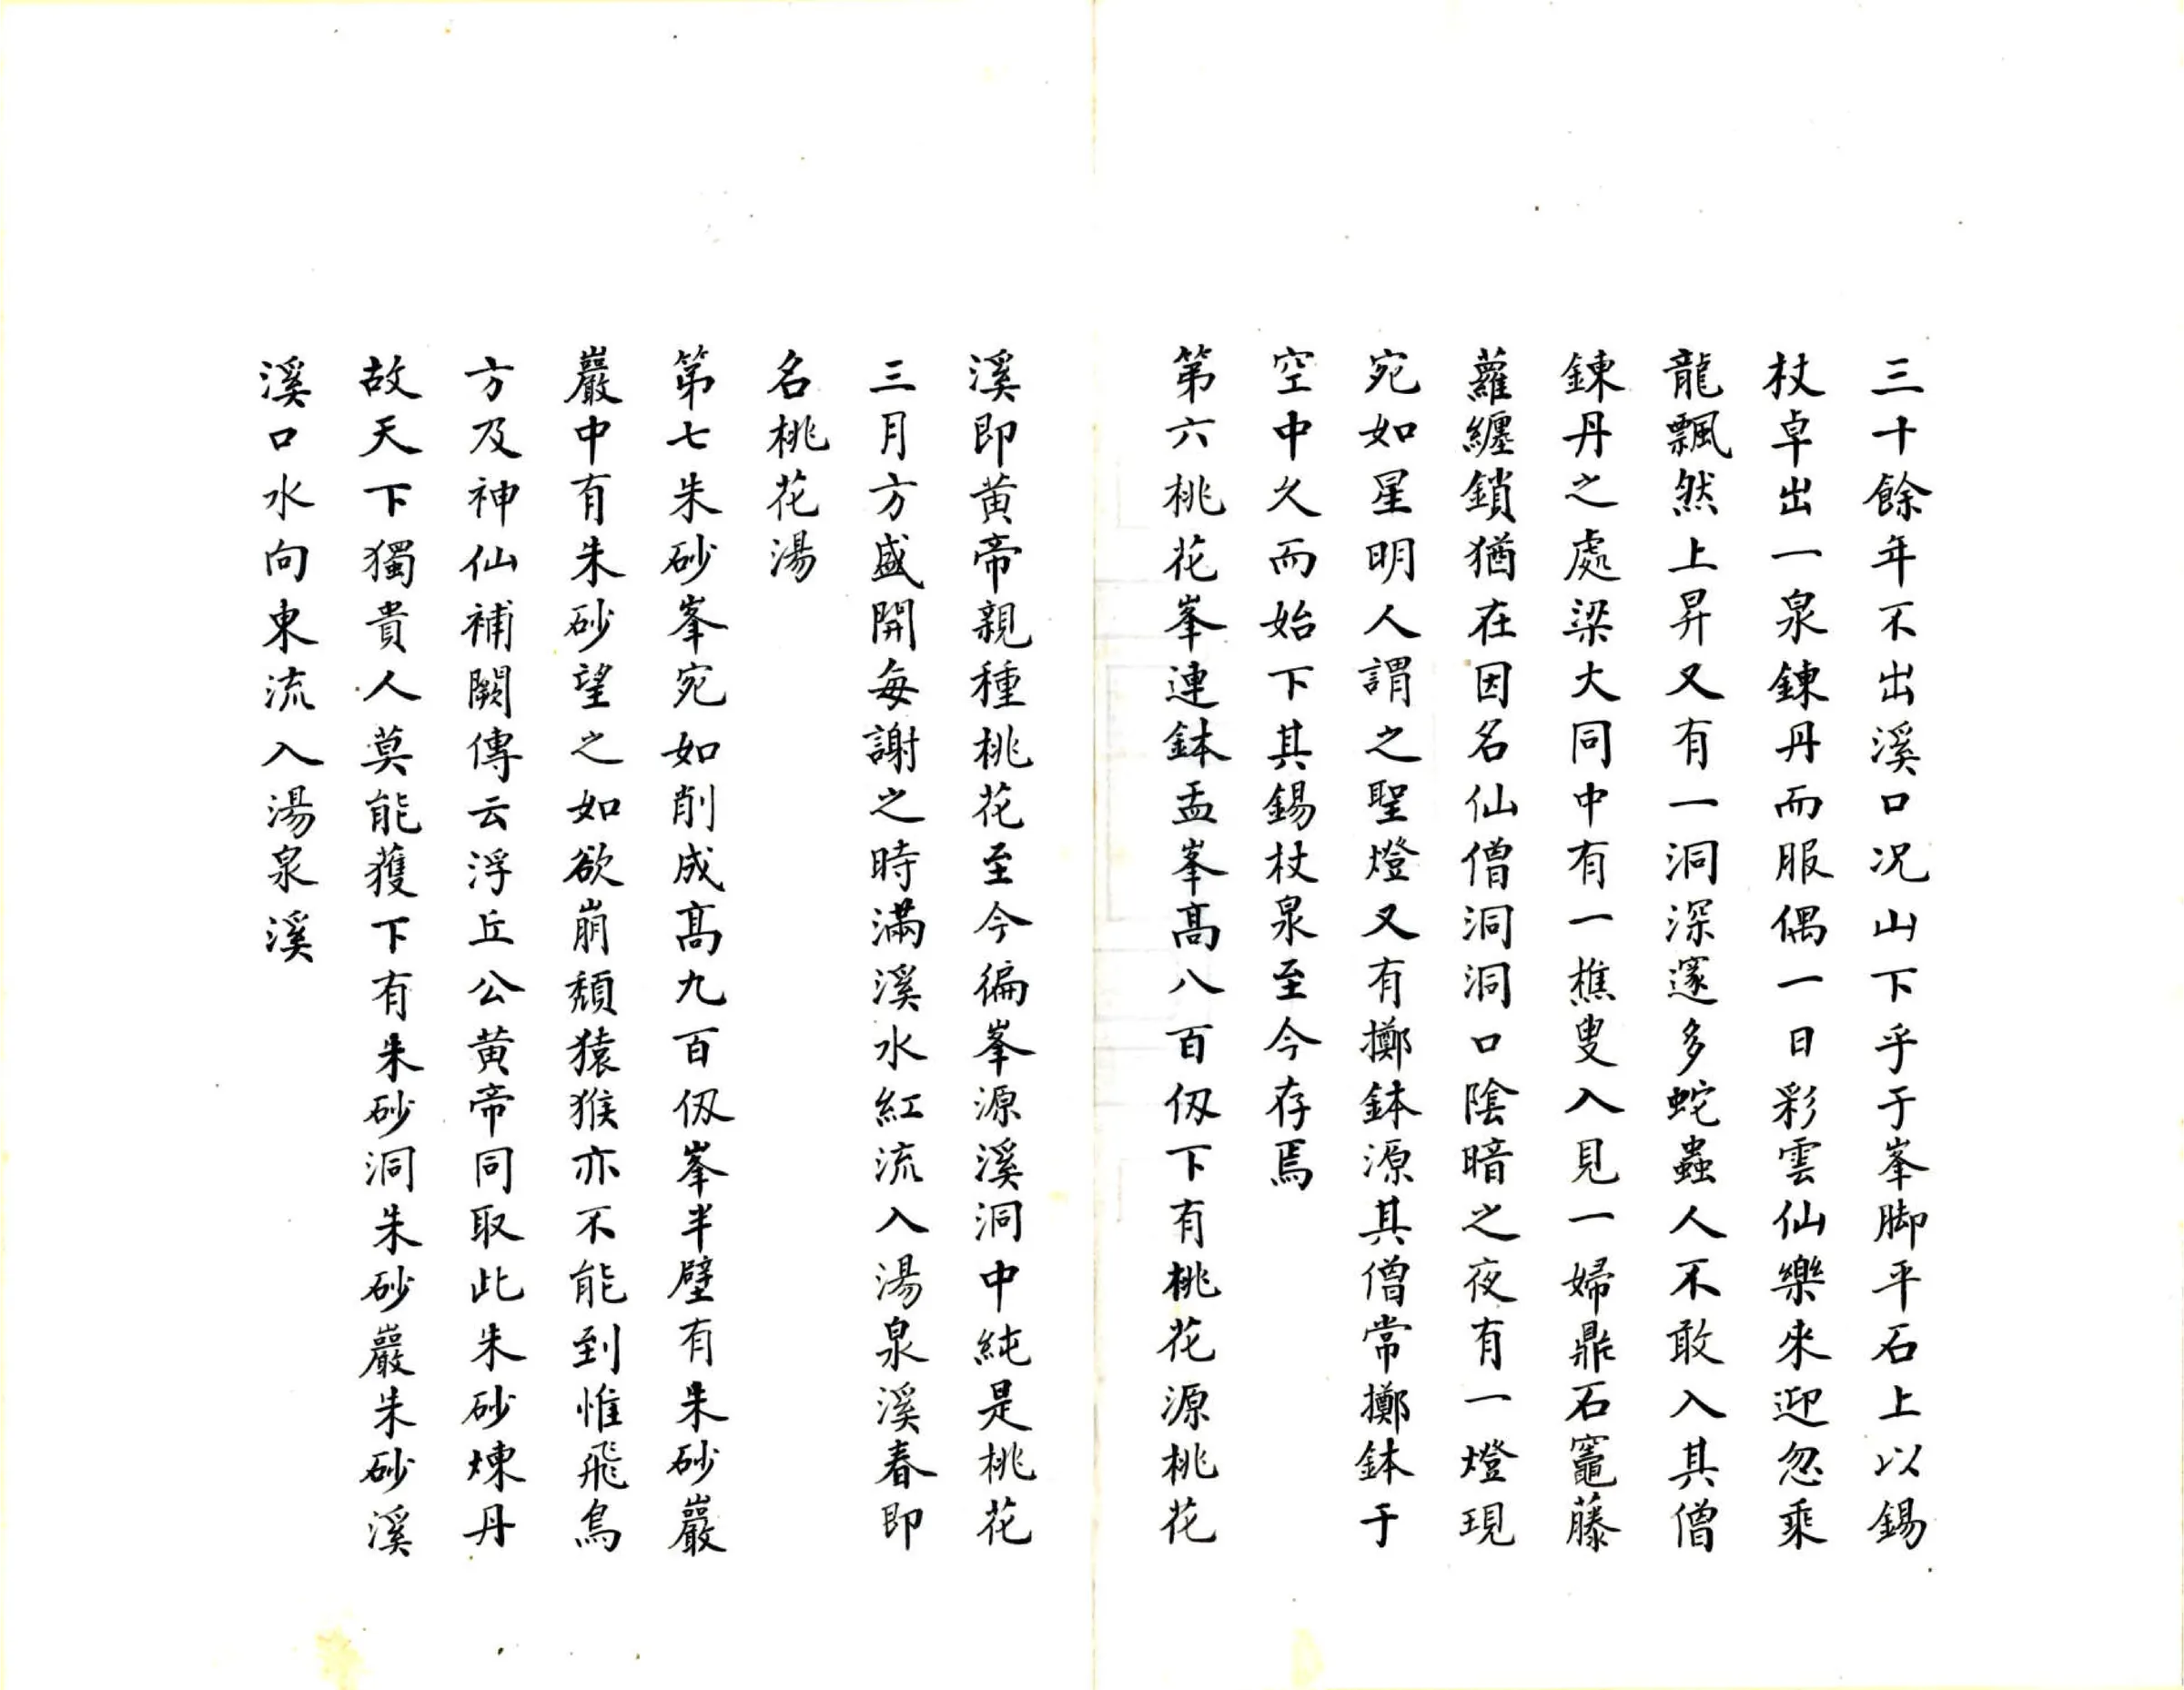 三十餘年不出溪口况山下乎于峯脚平石上以錫
杖卓出一泉鍊丹而服偶一日彩雲仙樂來迎忽乘
龍飄然上昇又有一洞深邃多蛇蟲人不敢入其僧
鍊丹之處梁大同中有一樵叟入見一婦鼎石竈藤
蘿纏鎖猶在因名仙僧洞洞口陰暗之夜有一燈現
宛如星明人謂之聖燈又有擲鉢源其僧常擲鉢于
空中久而始下其錫杖泉至今存焉
第六桃花峯連鉢盂峯髙八百仭下有桃花源桃花
溪即黄帝親種桃花至今徧峯源溪洞中純是桃花
三月方盛開每謝之時滿溪水紅流入湯泉溪春即
名桃花湯
第七朱砂峯宛如削成髙九百仭峯半壁有朱砂巖
巖中有朱砂望之如欲崩頹猿猴亦不能到惟飛鳥
方及神仙補闕傳云浮丘公黄帝同取此朱砂煉丹
故天下獨貴人莫能獲下有朱砂洞朱砂巖朱砂溪
溪口水向東流入湯泉溪